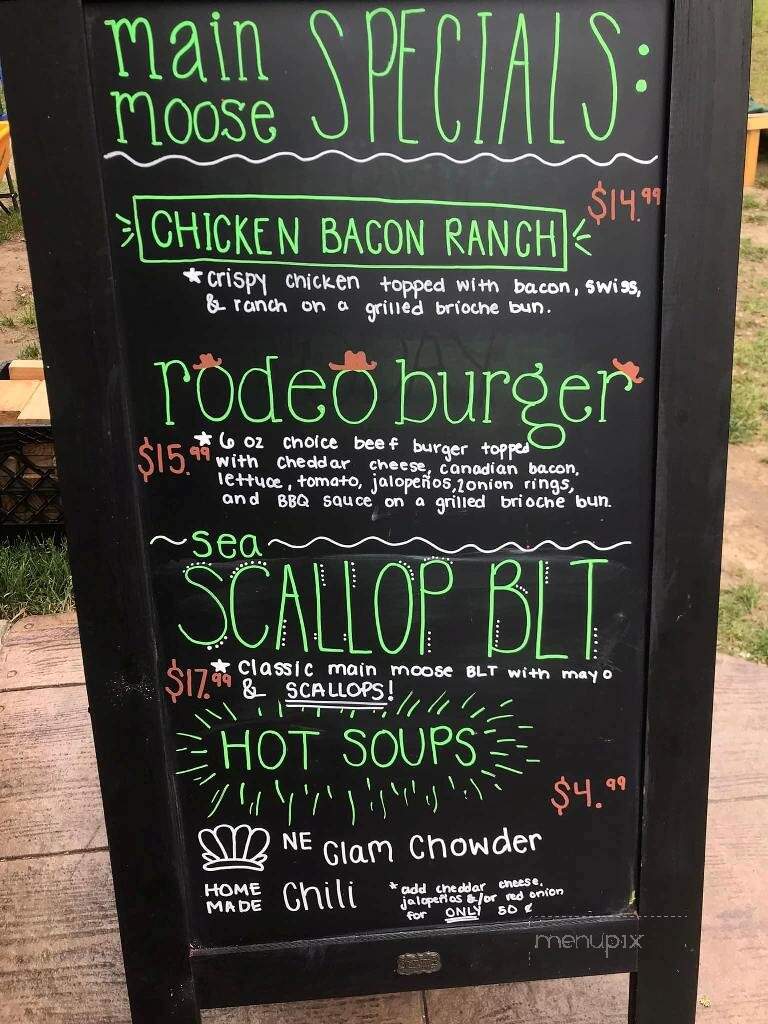 main moose SPECIALS:
CHICKEN BACON RANCH $14.99
*crispy chicken topped with bacon, swiss,
& ranch on a grilled brioche bun.
rodeo burger
$15.99 *6 oz choice beef burger topped
with cheddar cheese, canadian bacon,
lettuce, tomato, jalopeños, 2 onion rings,
and BBQ sauce on a grilled brioche bun.
~sea
SCALLOP BLT
$17.99 *classic main moose BLT with mayo
& SCALLOPS!
HOT SOUPS
$4.99
NE Clam Chowder
HOME MADE Chili
*add cheddar cheese,
jalopeños &/or red onion
for ONLY 50 ¢
menupix